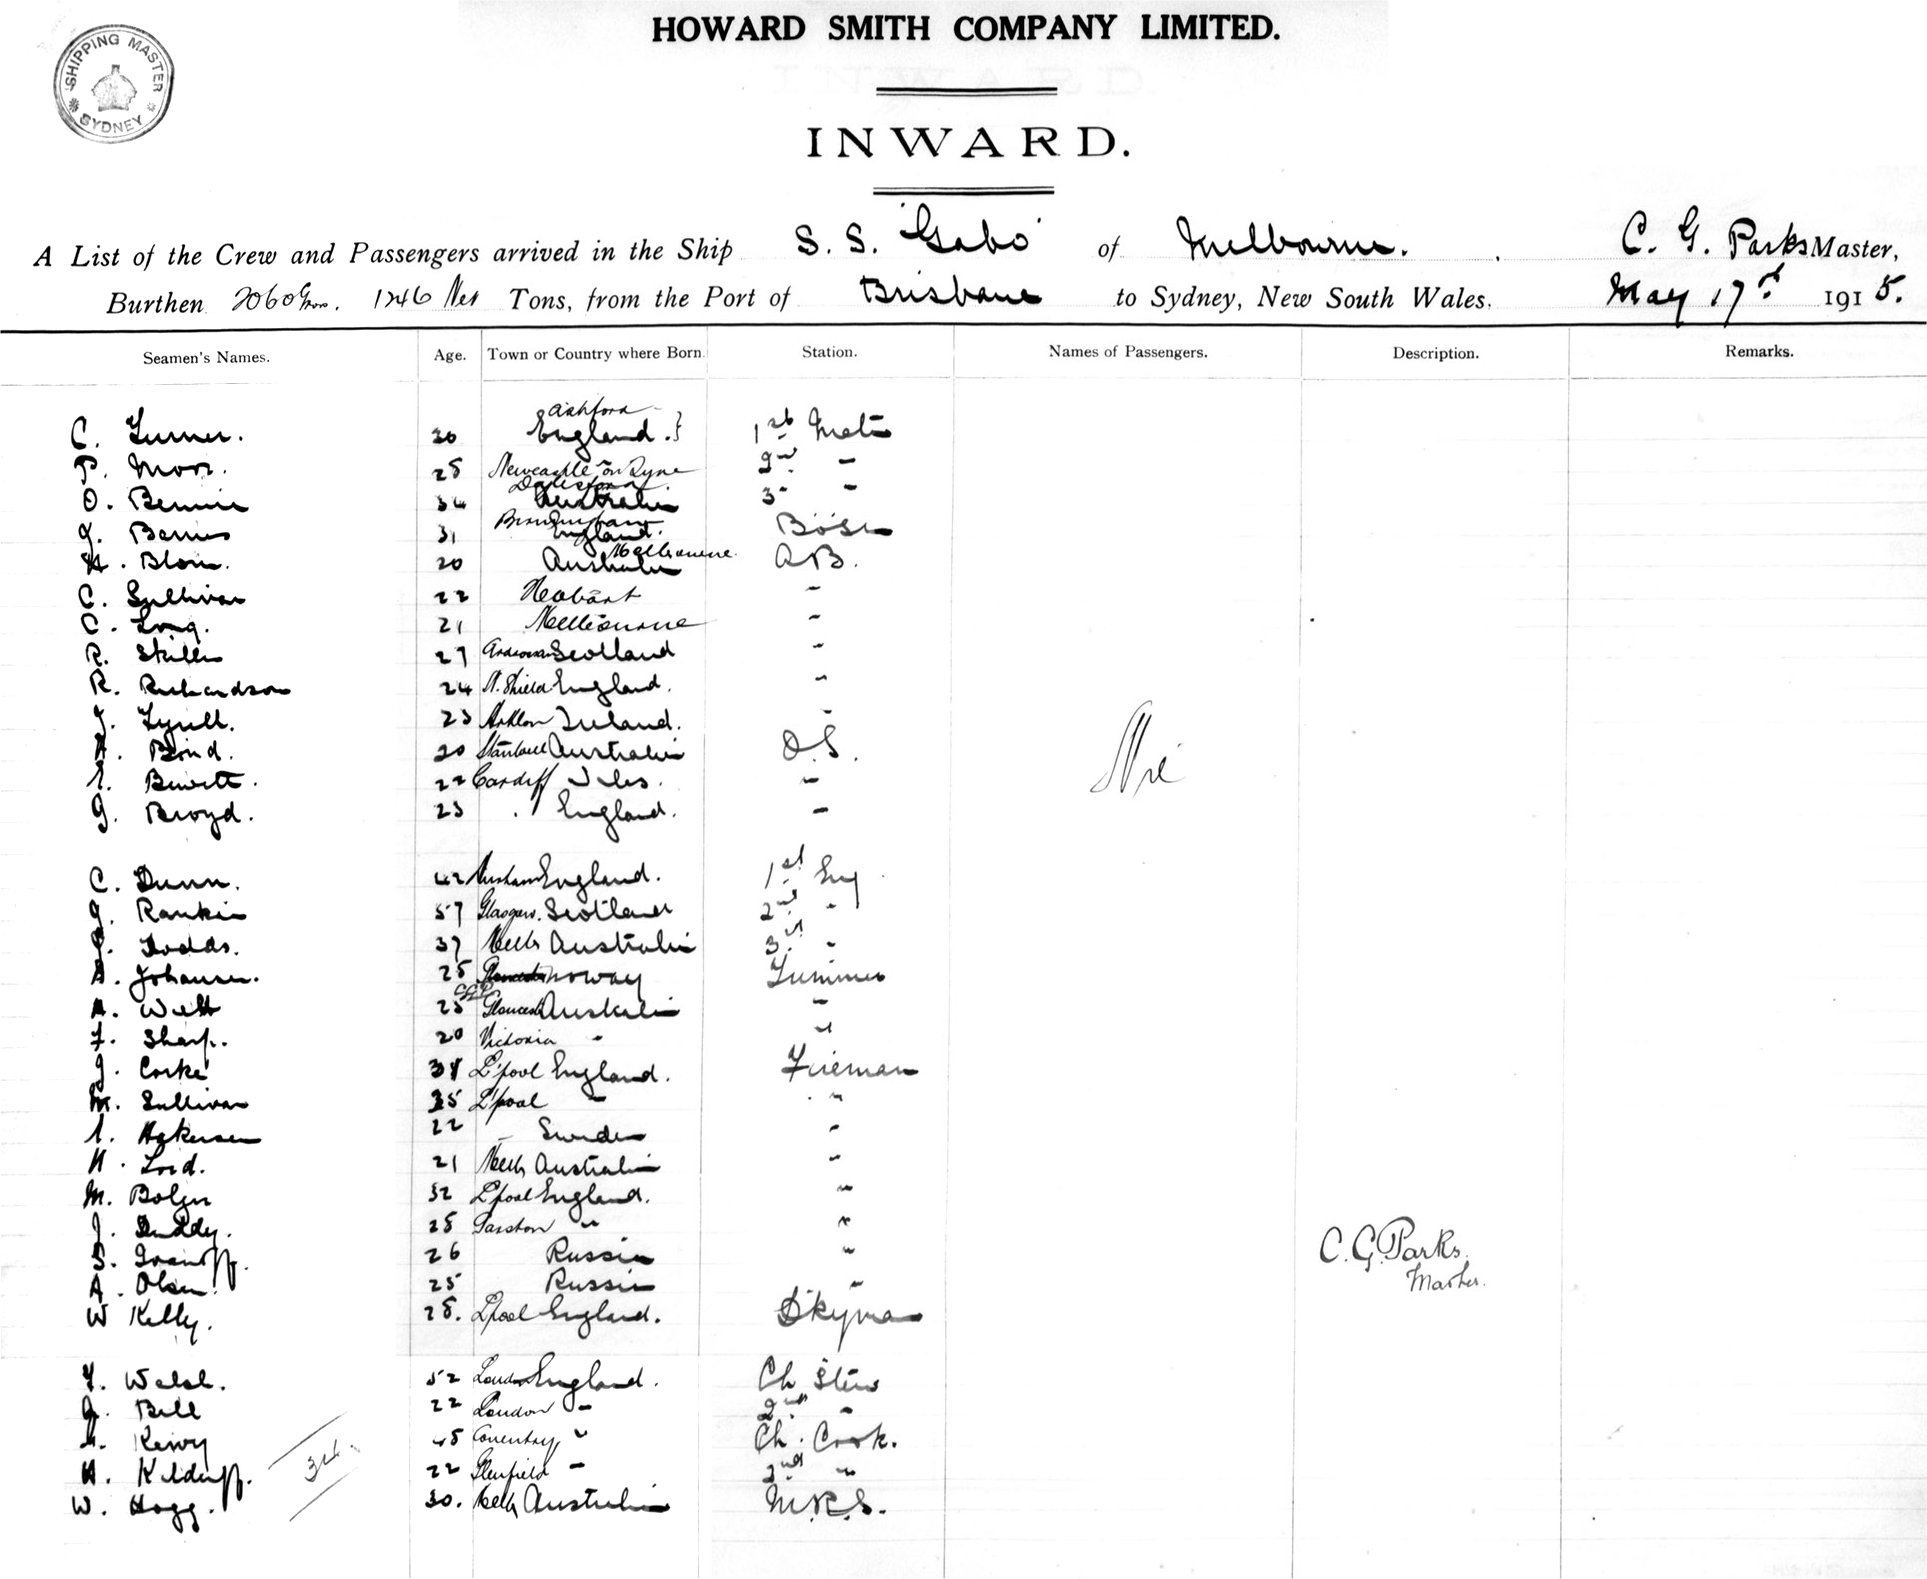 HOWARD SMITH COMPANY LIMITED.
SHIPPING MASTER SYDNEY
INWARD.
A List of the Crew and Passengers arrived in the Ship S. S. "Gabo" of Melbourne. C. G. Parks Master,
Burthen 2060 Gross. 1246 Net Tons, from the Port of Brisbane to Sydney, New South Wales. May 17th 1915.
Seamen's Names. Age. Town or Country where Born. Station. Names of Passengers. Description. Remarks.
C. Turner. 30 Ashford England. 1st Mate
P. 25 Newcastle on Tyne 2nd "
O. Bennie 34 Daylesford Australia 3rd "
Barnes 31 Birmingham England. Bosn
H. Blom. 20 Australia Melbourne. A.B.
C. Sullivan 22 Hobart "
C. Long. 21 Melbourne "
R. Skilling 27 Scotland "
R. Richardson 24 N. Shield England. "
J. Tyrell. 23 Arklow Ireland. "
A. Bond. 20 Australia O.S.
Bewett. 22 Cardiff "
G. Broyd. 23 " England. "
Nil
C. Dunn. 42 England. 1st Eng
G. Rankin 57 Glasgow. Scotland 2nd "
Dodds. 37 Melb Australia 3rd "
A. Johansen. 25 Norway Trimmer
CGP
A. Witt 23 Australia "
F. Sharp. 20 Victoria " "
J. Corke 38 L'pool England. Fireman
M. Sullivan 35 L'pool " "
22 Sweden "
H. Lord. 21 Melb Australia "
M. Bolger 32 L'pool England. "
J. Duddy. 28 Garston " "
S. 26 Russia "
C. G. Parks.
Master.
A. Olsen. 25 Russia "
W Kelly. 28. L'pool England. D'kyman
Welsh. 52 London England. Ch Stew
G. Bell 22 London " 2nd "
45 Coventry " Ch. Cook.
H. Kilduff. 22 Glenfield " 2nd "
W. Hogg. 30. Melb Australia M.R.S.
34.